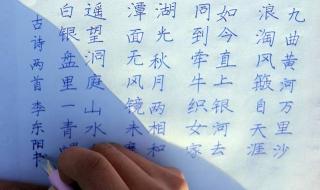 九曲黄河万里沙
浪淘风簸自天涯
如今直上银河去
同到牵牛织女家
湖光秋月两相和
潭面无风镜未
遥望洞庭山水
白银盘里一青
古诗两首 李东阳书